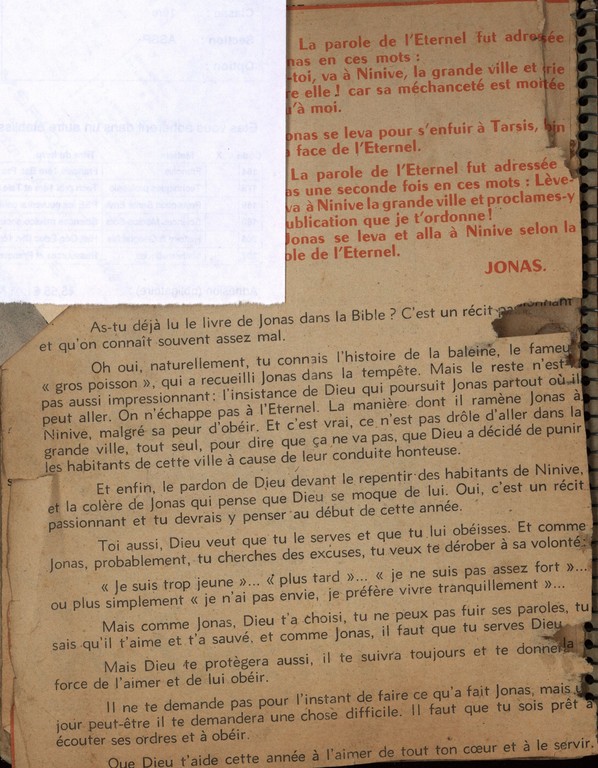 La parole de l'Eternel fut adressée
nas en ces mots :
-toi, va à Ninive, la grande ville et crie
re elle ! car sa méchanceté est montée
u'à moi.
onas se leva pour s'enfuir à Tarsis,
face de l'Eternel.
La parole de l'Eternel fut adressée
as une seconde fois en ces mots : Lève-
va à Ninive la grande ville et proclames-y
ublication que je t'ordonne !
Jonas se leva et alla à Ninive selon la
ole de l'Eternel.
JONAS.
As-tu déjà lu le livre de Jonas dans la Bible ? C'est un récit passionnant
et qu'on connaît souvent assez mal.
Oh oui, naturellement, tu connais l'histoire de la baleine, le fameu
« gros poisson », qui a recueilli Jonas dans la tempête. Mais le reste n'est
pas aussi impressionnant : l'insistance de Dieu qui poursuit Jonas partout où il
peut aller. On n'échappe pas à l'Eternel. La manière dont il ramène Jonas à
Ninive, malgré sa peur d'obéir. Et c'est vrai, ce n'est pas drôle d'aller dans la
grande ville, tout seul, pour dire que ça ne va pas, que Dieu a décidé de punir
les habitants de cette ville à cause de leur conduite honteuse.
Et enfin, le pardon de Dieu devant le repentir des habitants de Ninive,
et la colère de Jonas qui pense que Dieu se moque de lui. Oui, c'est un récit
passionnant et tu devrais y penser au début de cette année.
Toi aussi, Dieu veut que tu le serves et que tu lui obéisses. Et comme
Jonas, probablement, tu cherches des excuses, tu veux te dérober à sa volonté :
« Je suis trop jeune »... « plus tard »... « je ne suis pas assez fort »...
ou plus simplement « je n'ai pas envie, je préfère vivre tranquillement »...
Mais comme Jonas, Dieu t'a choisi, tu ne peux pas fuir ses paroles, tu
sais qu'il t'aime et t'a sauvé, et comme Jonas, il faut que tu serves Dieu
Mais Dieu te protègera aussi, il te suivra toujours et te donnera la
force de l'aimer et de lui obéir.
Il ne te demande pas pour l'instant de faire ce qu'a fait Jonas, mais u
jour peut-être il te demandera une chose difficile. Il faut que tu sois prêt à
écouter ses ordres et à obéir.
Que Dieu t'aide cette année à l'aimer de tout ton cœur et à le servir.